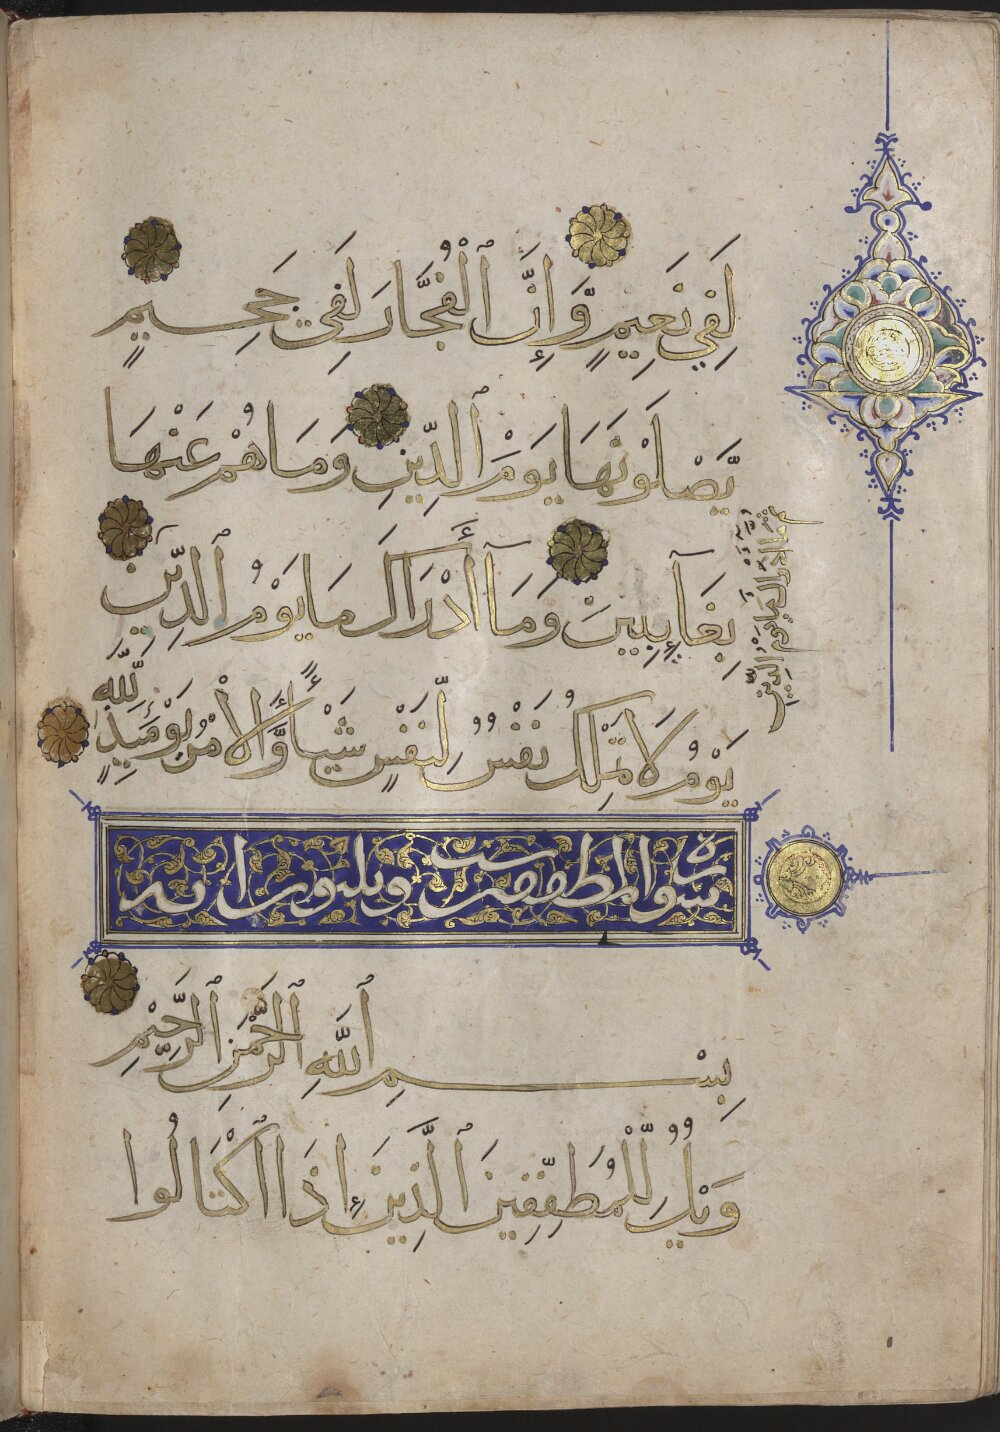 لَفِي نَعِيمٍ وَّإِنَّ ٱلْفُجَّارَ لَفِي جَحِيمٍ
يَّصْلَوْنَهَا يَوْمَ ٱلدِّينِ وَمَا هُمْ عَنْهَا
بِغَآئِبِينَ وَمَآ أَدْرَاكَ مَا يَوْمُ ٱلدِّينِ
ثُمَّ مَآ أَدْرَاكَ مَا يَوْمُ ٱلدِّينِ
يَوْمُ لَا تَمْلِكُ نَفْسٌ لِّنَفْسٍ شَيْـًٔا وَّالْأَمْرُ يَوْمَئِذٍ لِّلَّهِ
سورة المطففين ست وثلثون اية
بِسْمِ ٱللَّهِ ٱلرَّحْمَنِ ٱلرَّحِيْمِ
وَيْلٌ لِّلْمُطَفِّفِينَ ٱلَّذِينَ إِذَا ٱكْتَالُوا